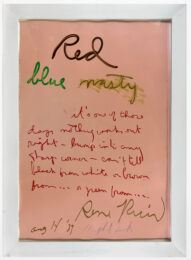 Red
blue nasty
it's one of those
days nothing works out
right - bump into any
sharp corner - can't tell
black from white or brown
from... a green from...
Aug 14 '97